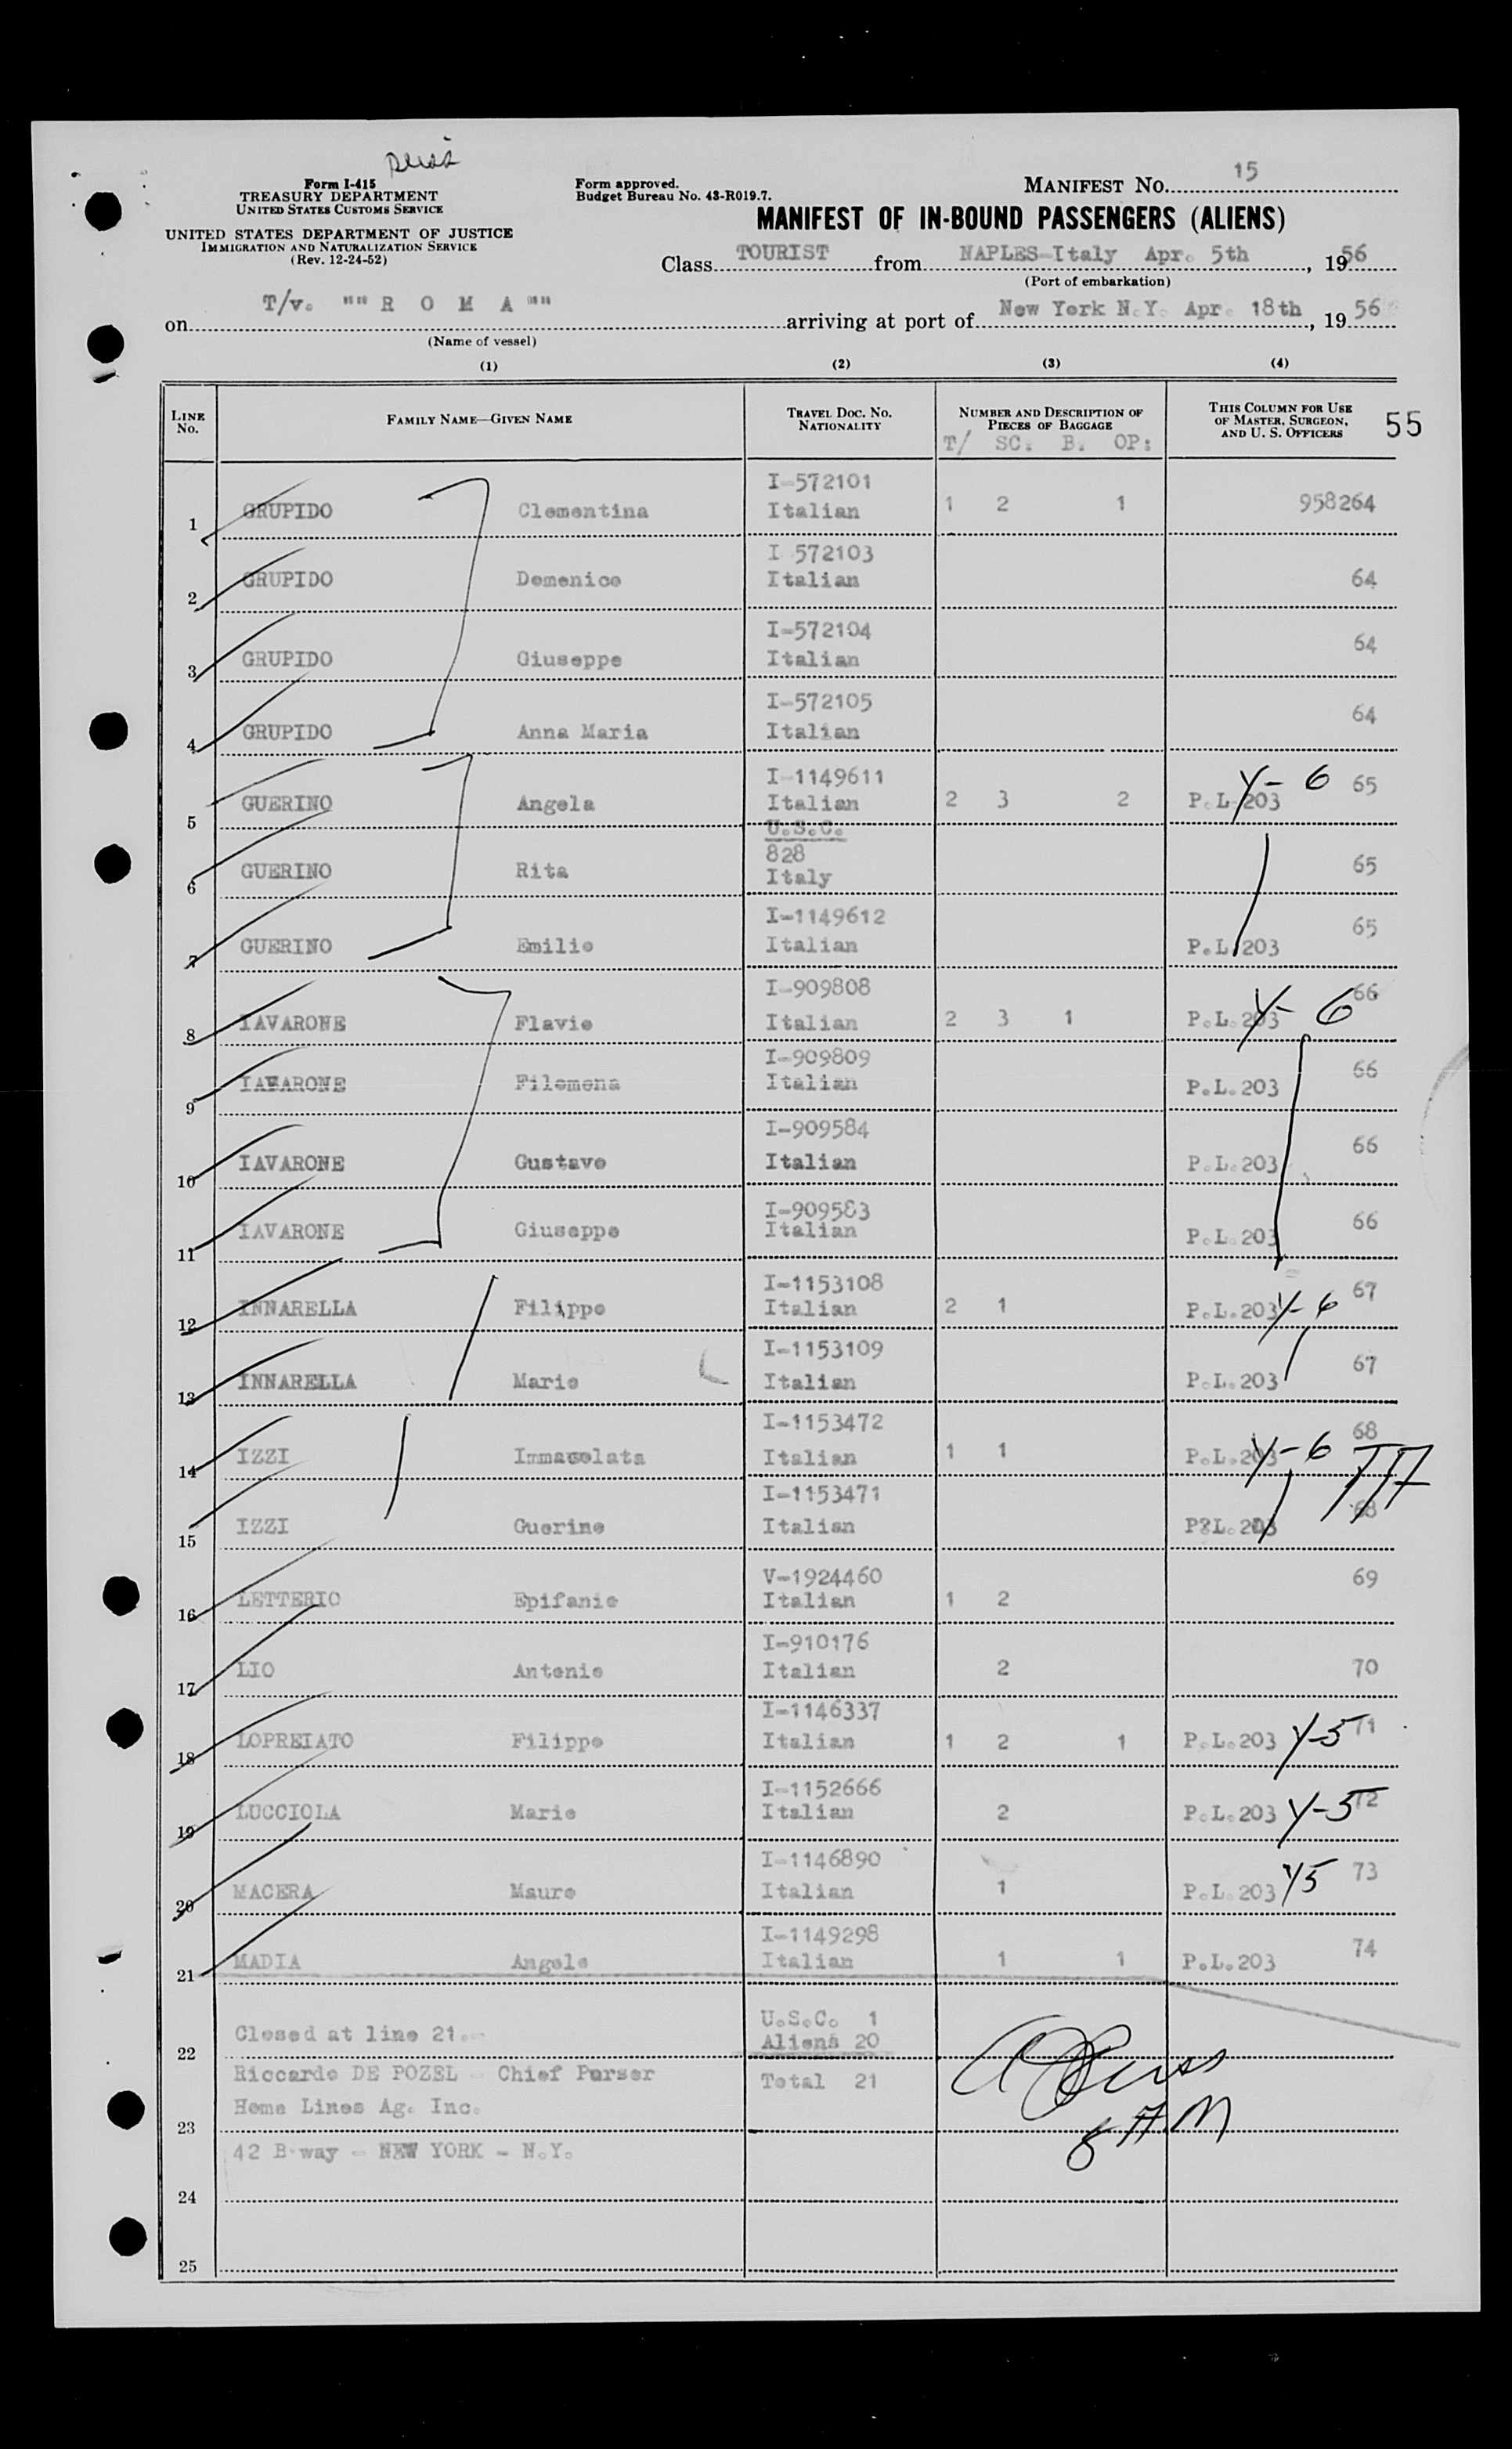 Form I-415
TREASURY DEPARTMENT
UNITED STATES CUSTOMS SERVICE
UNITED STATES DEPARTMENT OF JUSTICE
IMMIGRATION AND NATURALIZATION SERVICE
(Rev. 12-24-52)
Form approved.
Budget Bureau No. 43-R019.7.
MANIFEST NO. 15
MANIFEST OF IN-BOUND PASSENGERS (ALIENS)
Class TOURIST from NAPLES-Italy Apr. 5th, 1956
(Port of embarkation)
on T/v. ""R O M A"" arriving at port of New York N.Y. Apr. 18th, 1956
(Name of vessel)
(1) (2) (3) (4)
LINE NO. FAMILY NAME—GIVEN NAME TRAVEL DOC. NO. NATIONALITY NUMBER AND DESCRIPTION OF PIECES OF BAGGAGE THIS COLUMN FOR USE OF MASTER, SURGEON, AND U. S. OFFICERS 55
T/ SC. B. OP:
I-572101
1 GRUPIDO Clementina Italian 1 2 1 958264
I 572103
2 GRUPIDO Domenico Italian 64
I-572104
3 GRUPIDO Giuseppe Italian 64
I-572105
4 GRUPIDO Anna Maria Italian 64
I-1149611
5 GUERINO Angela Italian 2 3 2 P.L.203 Y-6 65
U.S.C.
828
6 GUERINO Rita Italy 65
I-1149612
7 GUERINO Emilio Italian P.L.203 65
I-909808
8 IAVARONE Flavio Italian 2 3 1 P.L.203 Y-6 66
I-909809
9 IAVARONE Filomena Italian P.L.203 66
I-909584
10 IAVARONE Gustavo Italian P.L.203 66
I-909583
11 IAVARONE Giuseppe Italian P.L.203 66
I-1153108
12 INNARELLA Filippo Italian 2 1 P.L.203 Y-6 67
I-1153109
13 INNARELLA Mario Italian P.L.203 67
I-1153472
14 IZZI Immacolata Italian 1 1 P.L.203 Y-6 68
I-1153471
15 IZZI Guerino Italian P?L.203 68
V-1924460
16 LETTERIO Epifanio Italian 1 2 69
I-910176
17 LIO Antonio Italian 2 70
I-1146337
18 LOPREIATO Filippo Italian 1 2 1 P.L.203 Y-5 71
I-1152666
19 LUCCIOLA Mario Italian 2 P.L.203 Y-5 72
I-1146890
20 MACERA Mauro Italian 1 P.L.203 Y5 73
I-1149298
21 MADIA Angelo Italian 1 1 P.L.203 74
Closed at line 21.- U.S.C. 1
22 Aliens 20
Riccardo DE POZEL - Chief Purser Total 21
Home Lines Ag. Inc.
23
42 B-way - NEW YORK - N.Y.
24
25